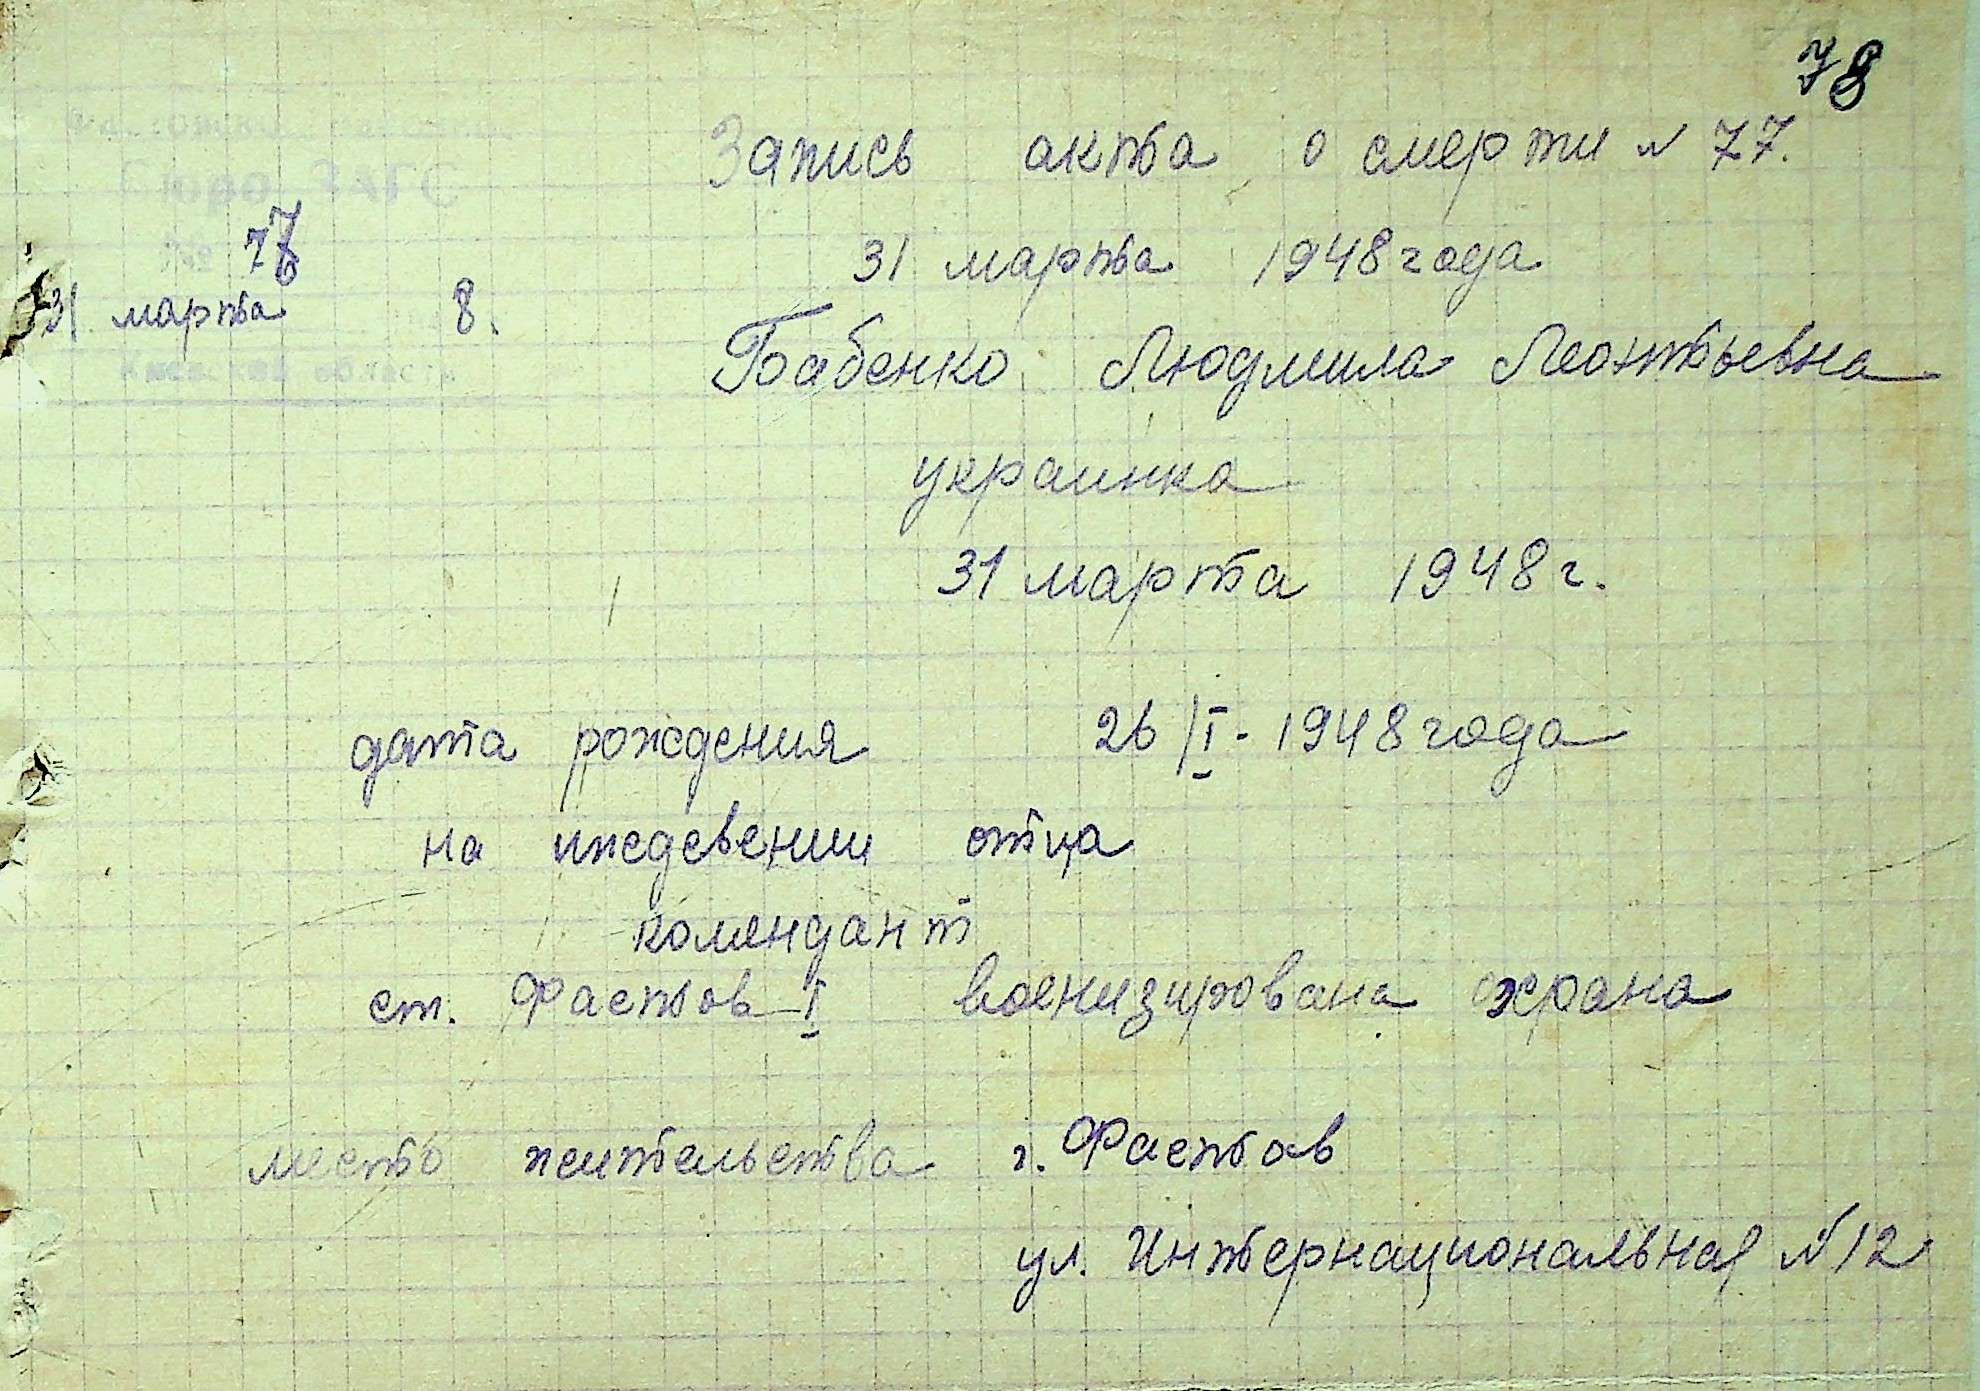 78
Запись акта о смерти № 77.
Бюро ЗАГС
№ 77
31 марта 8.
Киевской области
31 марта 1948 года
Бабенко Людмила Леонтьевна
украинка
31 марта 1948 г.
дата рождения 26/I - 1948 года
на иждевении отца
комендант
ст. Фастов I военизирована охрана
место жительства г. Фастов
ул. Интернациональная №12